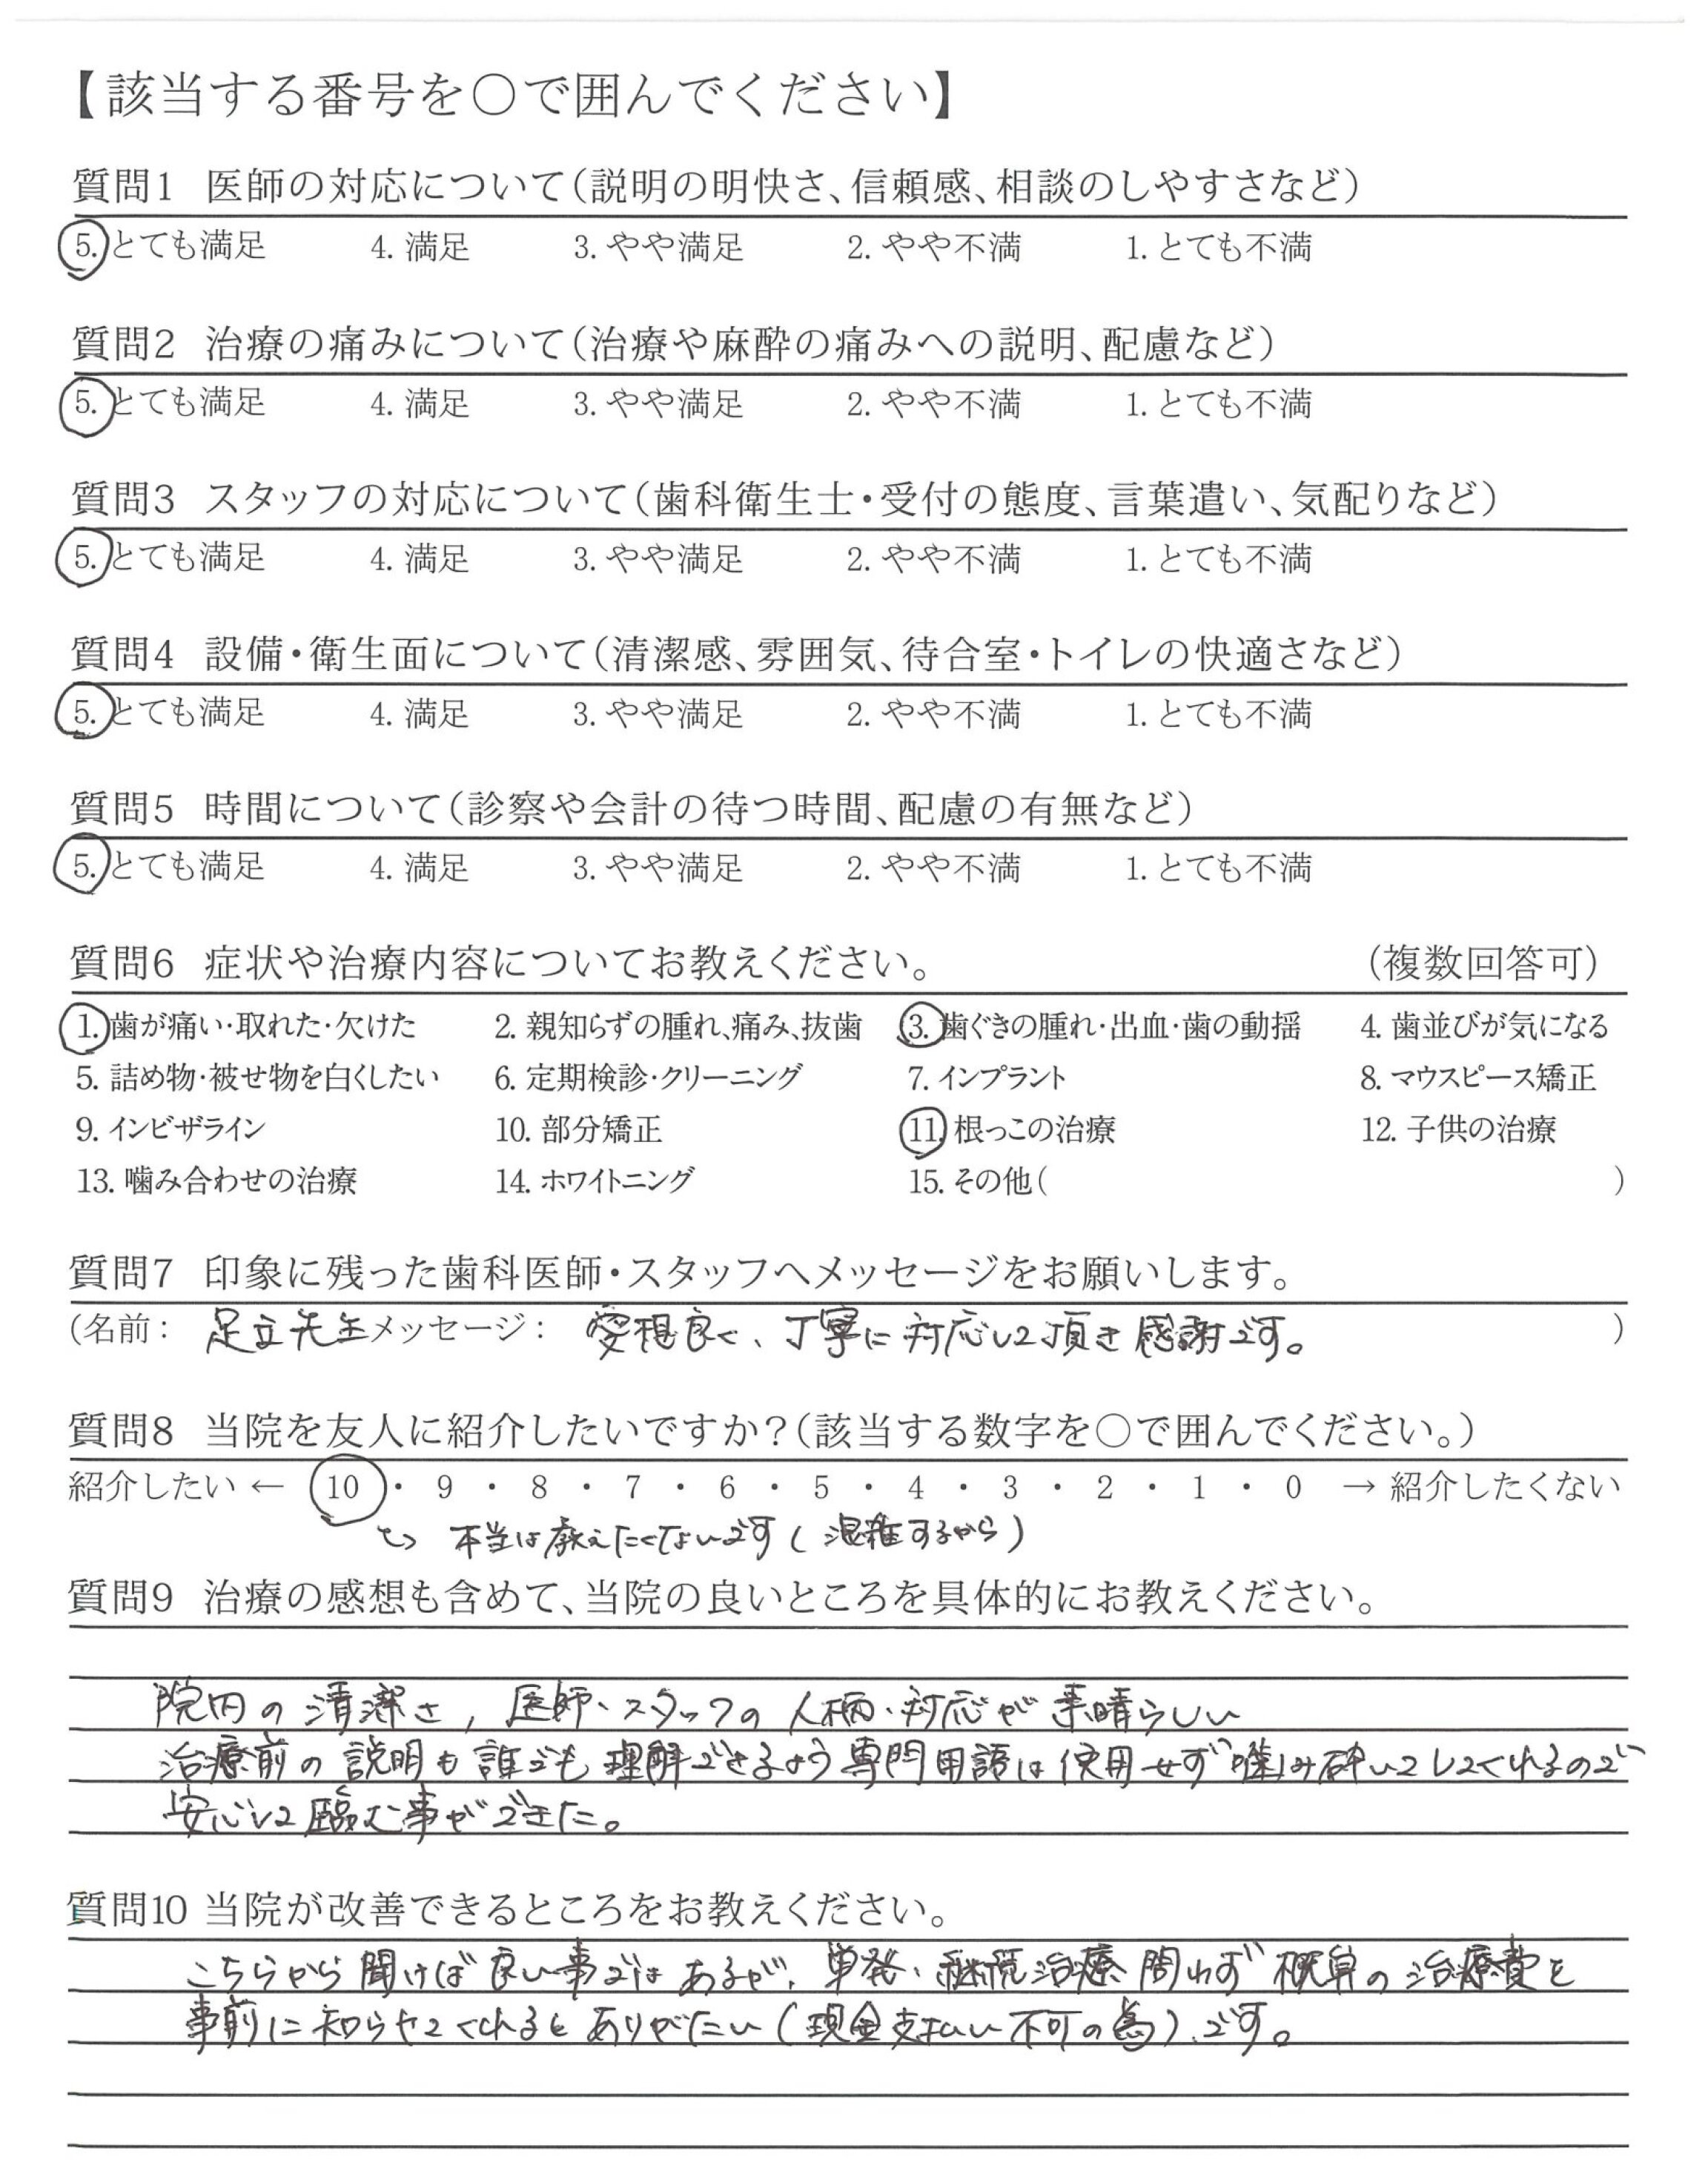 【該当する番号を○で囲んでください】
質問1 医師の対応について(説明の明快さ、信頼感、相談のしやすさなど)
5. とても満足 4. 満足 3. やや満足 2. やや不満 1. とても不満
質問2 治療の痛みについて(治療や麻酔の痛みへの説明、配慮など)
5. とても満足 4. 満足 3. やや満足 2. やや不満 1. とても不満
質問3 スタッフの対応について(歯科衛生士・受付の態度、言葉遣い、気配りなど)
5. とても満足 4. 満足 3. やや満足 2. やや不満 1. とても不満
質問4 設備・衛生面について(清潔感、雰囲気、待合室・トイレの快適さなど)
5. とても満足 4. 満足 3. やや満足 2. やや不満 1. とても不満
質問5 時間について(診察や会計の待つ時間、配慮の有無など)
5. とても満足 4. 満足 3. やや満足 2. やや不満 1. とても不満
質問6 症状や治療内容についてお教えください。 (複数回答可)
1. 歯が痛い・取れた・欠けた 2. 親知らずの腫れ、痛み、抜歯 3. 歯ぐきの腫れ・出血・歯の動揺 4. 歯並びが気になる
5. 詰め物・被せ物を白くしたい 6. 定期検診・クリーニング 7. インプラント 8. マウスピース矯正
9. インビザライン 10. 部分矯正 11. 根っこの治療 12. 子供の治療
13. 噛み合わせの治療 14. ホワイトニング 15. その他( )
質問7 印象に残った歯科医師・スタッフへメッセージをお願いします。
(名前: 足立先生 メッセージ: 愛想良く、丁寧に対応して頂き感謝です。 )
質問8 当院を友人に紹介したいですか?(該当する数字を○で囲んでください。)
紹介したい ← 10 ・ 9 ・ 8 ・ 7 ・ 6 ・ 5 ・ 4 ・ 3 ・ 2 ・ 1 ・ 0 → 紹介したくない
↪ 本当は教えたくないです(混雑するから)
質問9 治療の感想も含めて、当院の良いところを具体的にお教えください。
院内の清潔さ, 医師・スタッフの人柄・対応が素晴らしい
治療前の説明も誰でも理解できるよう専門用語は使用せず噛み砕いてしてくれるので
安心して臨む事ができた。
質問10 当院が改善できるところをお教えください。
こちらから聞けば良い事ではあるが、単発・継続治療問わず概算の治療費を
事前に知らせてくれるとありがたい(現金支払い不可の為)です。